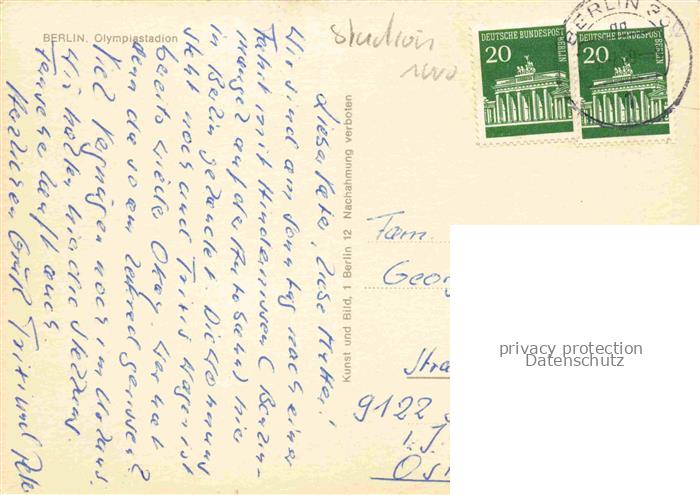 BERLIN. Olympiastadion
Stadion
DEUTSCHE BUNDESPOST
BERLIN
20
DEUTSCHE BUNDESPOST
BERLIN
20
BERLIN
Kunst und Bild, 1 Berlin 12 Nachahmung verboten
Lieber Vater, liebe Mutter!
Wir sind am Sonntag nach einer
Fahrt mit Hindernissen (Benzin-
mangel auf der Autobahn) hier
in Berlin gelandet. Die Wohnung
steht noch und Trixis Wagen ist
bereits wieder Okay. Wer hat
denn da so am gerissen?
Viel Vergnügen noch im Urlaub.
Wir halten hier die Stellung
Herzlichen Gruß Trixi und
Fam.
Georg
Stra
9122
i. J.
Öst
privacy protection
Datenschutz